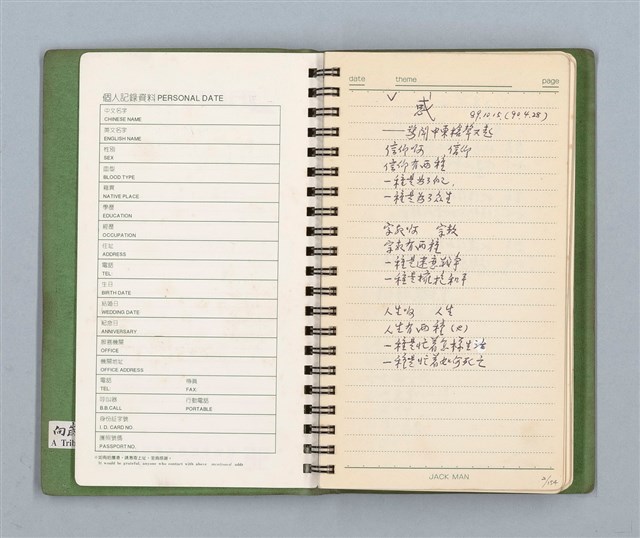 個人記錄資料 PERSONAL DATE
中文名字
CHINESE NAME
英文名字
ENGLISH NAME
性別
SEX
血型
BLOOD TYPE
籍貫
NATIVE PLACE
學歷
EDUCATION
經歷
OCCUPATION
住址
ADDRESS
電話
TEL
生日
BIRTH DATE
結婚日
WEDDING DATE
紀念日
ANNIVERSARY
服務機關
OFFICE
機關地址
OFFICE ADDRESS
電話 傳真
TEL FAX
呼叫器 行動電話
B.B.CALL PORTABLE
身份証字號
I. D. CARD NO.
護照號碼
PASSPORT NO.
It would be grateful, anyone who contact with above mentioned adds
向
A Trib
date theme page
感
89.10.15.(90.4.28)
——驚聞中東槍聲又起
信仰啊 信仰
信仰有兩種
一種是為了
一種是為了众生
宗教啊 宗教
宗教有兩種
一種是速意戰爭
一種是擁抱和平
人生啊 人生
人生有兩種
一種是忙着怎樣生活
一種是忙着如何死亡
JACK MAN
2/154